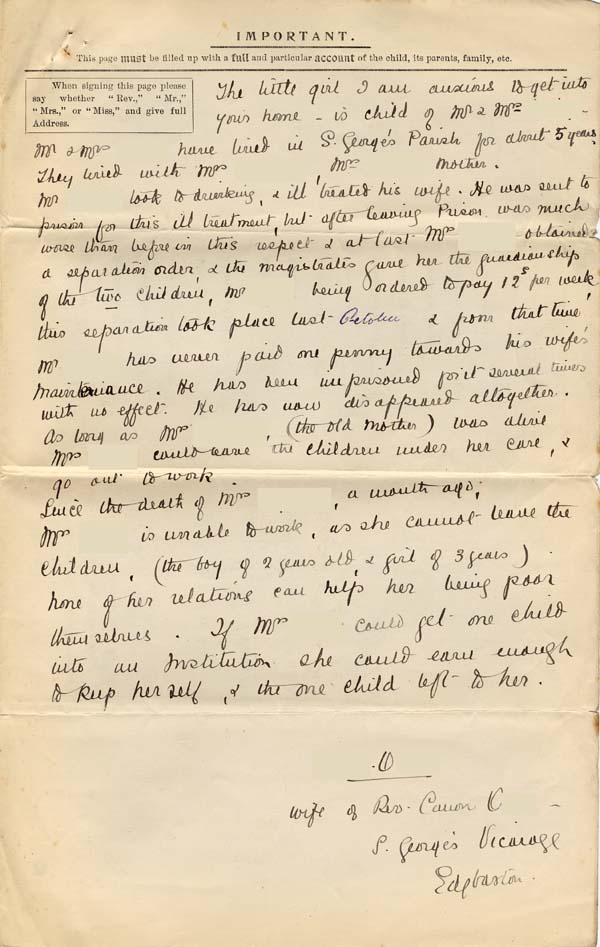 IMPORTANT.
This page must be filled up with a full and particular account of the child, its parents, family, etc.
When signing this page please
say whether "Rev.," "Mr.,"
"Mrs.," or "Miss," and give full
Address.
The little girl I am anxious to get into
your home - is child of Mr & Mrs
Mr & Mrs have lived in S. George's Parish for about 5 years
They lived with Mrs , Mrs mother.
Mr took to drinking, & ill treated his wife. He was sent to
prison for this ill treatment, but after leaving Prison was much
worse than before in this respect & at last Mrs obtained
a separation order, & the magistrates gave her the guardianship
of the two children, Mr being ordered to pay 12s per week
this separation took place last October & from that time
Mr has never paid one penny towards his wife's
maintenance. He has been imprisoned for it several times
with no effect. He has now disappeared altogether.
As long as Mrs , (the old mother) was alive
Mrs could leave the children under her care, &
go out to work.
Since the death of Mrs , a month ago;
Mrs is unable to work, as she cannot leave the
children, (the boy of 2 years old, & girl of 3 years)
none of her relations can help her being poor
themselves. If Mrs could get one child
into an Institution she could earn enough
to keep herself, & the one child left to her.
wife of Rev. Canon
S. George's Vicarage
Edgbaston.